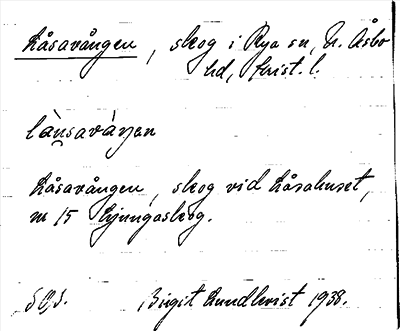 Låsavången, skog i Rya sn, N. Åsbo
hd, Krist. l.
lå̀nsavȧŋen
Låsavången, skog vid Låsahuset,
nr 15 Ljungaskog.
Birgit Lundkvist 1938.